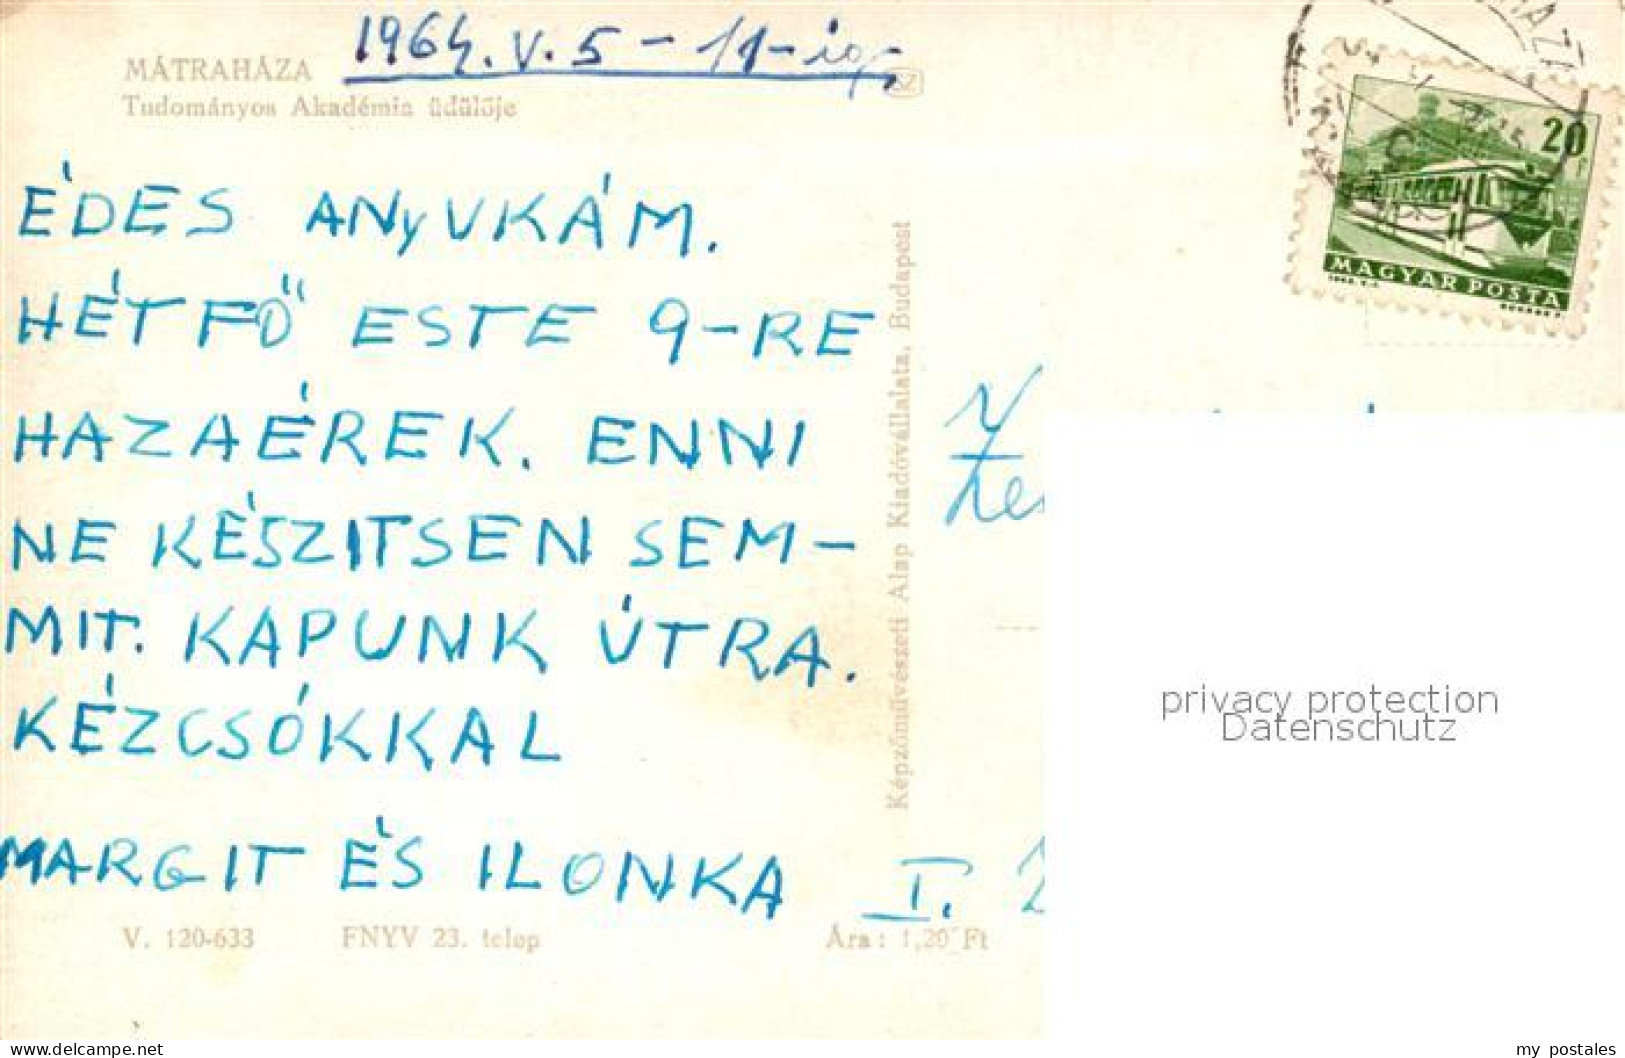 1964. V. 5 - 11-ig
MÁTRAHÁZA
Tudományos Akadémia üdülője
ÉDES ANyUKÁM.
HÉTFŐ ESTE 9-RE
HAZAÉREK. ENNI
NE KÉSZITSEN SEM-
MIT. KAPUNK ÚTRA.
KÉZCSÓKKAL
MARGIT ÉS ILONKA
V. 120-633 FNYV 23. telep Ára: 1,20 Ft
Képzőművészeti Alap Kiadóvállalata, Budapest
20
MAGYAR POSTA
I.
privacy protection
Datenschutz
delcampe.net
my_postales